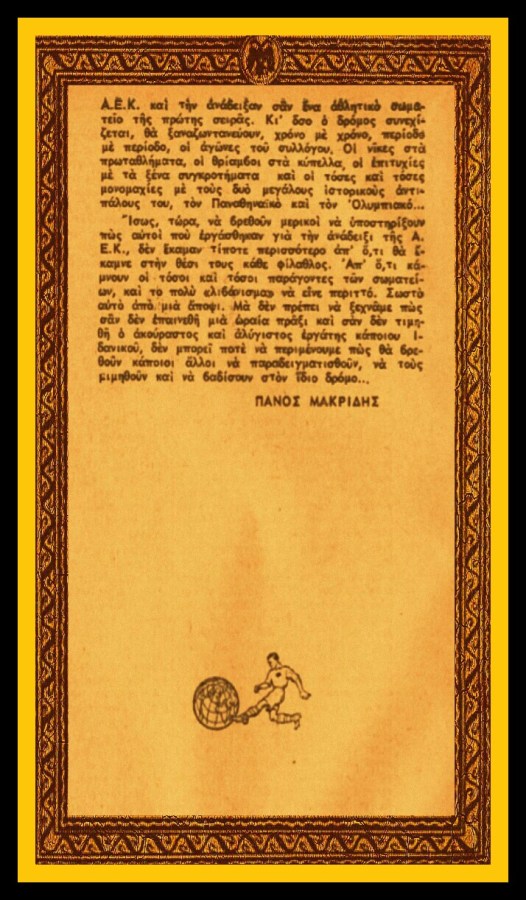 Α.Ε.Κ. καὶ τὴν ἀνάδειξαν σὰν ἕνα ἀθλητικὸ σωμα-
τεῖο τῆς πρώτης σειρᾶς. Κι' ὅσο ὁ δρόμος συνεχί-
ζεται, θὰ ξαναζωντανεύουν, χρόνο μὲ χρόνο, περίοδο
μὲ περίοδο, οἱ ἀγῶνες τοῦ συλλόγου. Οἱ νίκες στὰ
πρωταθλήματα, οἱ θρίαμβοι στὰ κύπελλα, οἱ ἐπιτυχίες
μὲ τὰ ξένα συγκροτήματα καὶ οἱ τόσες καὶ τόσες
μονομαχίες μὲ τοὺς δυὸ μεγάλους ἱστορικοὺς ἀντι-
πάλους του, τὸν Παναθηναϊκὸ καὶ τὸν Ὀλυμπιακό...
Ἴσως, τώρα, νὰ βρεθοῦν μερικοὶ νὰ ὑποστηρίξουν
πὼς αὐτοὶ ποὺ ἐργάσθηκαν γιὰ τὴν ἀνάδειξι τῆς Α.
Ε.Κ., δὲν ἔκαμαν τίποτε περισσότερο ἀπ' ὅ,τι θὰ ἔ-
καμνε στὴν θέσι τους κάθε φίλαθλος. Ἀπ' ὅ,τι κά-
μνουν οἱ τόσοι καὶ τόσοι παράγοντες τῶν σωματεί-
ων, καὶ τὸ πολὺ «λιβάνισμα» νὰ εἶνε περιττό. Σωστὸ
αὐτὸ ἀπὸ μιὰ ἄποψι. Μὰ δὲν πρέπει νὰ ξεχνᾶμε πὼς
σὰν δὲν ἐπαινεθῆ μιὰ ὡραία πράξι καὶ σὰν δὲν τιμη-
θῆ ὁ ἀκούραστος καὶ ἀλύγιστος ἐργάτης κάποιου Ἰ-
δανικοῦ, δὲν μπορεῖ ποτὲ νὰ περιμένουμε πὼς θὰ βρε-
θοῦν κάποιοι ἄλλοι νὰ παραδειγματισθοῦν, νὰ τοὺς
μιμηθοῦν καὶ νὰ βαδίσουν στὸν ἴδιο δρόμο...
ΠΑΝΟΣ ΜΑΚΡΙΔΗΣ